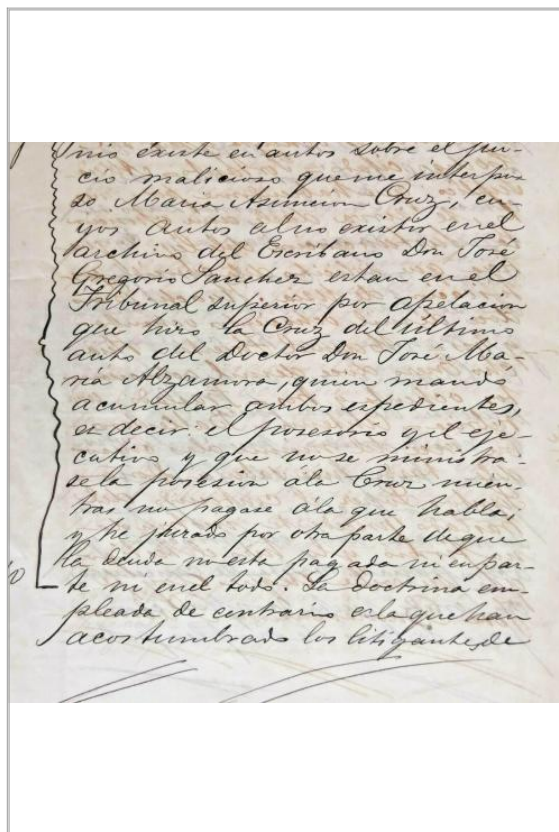 mio existe en autos sobre el jui-
cio malicioso que me interpu-
so Maria Asuncion Cruz, cu-
yos autos al no existir en el
archivo del Escribano Don José
Gregorio Sanchez estan en el
Tribunal superior por apelacion
que hiso la Cruz del último
auto del Doctor Don José Ma-
ría Alzamora, quien mandó
acumular ambos espedientes,
es decir: el posesorio y el eje-
cutivo y que no se ministra-
se la posesion á la Cruz mien-
tras no pagase á la que habla,
y he jurado por otra parte de que
la deuda no esta pagada ni en par-
te ni en el todo. La doctrina em-
pleada de contrario es la que han
acostumbrado los litigantes de